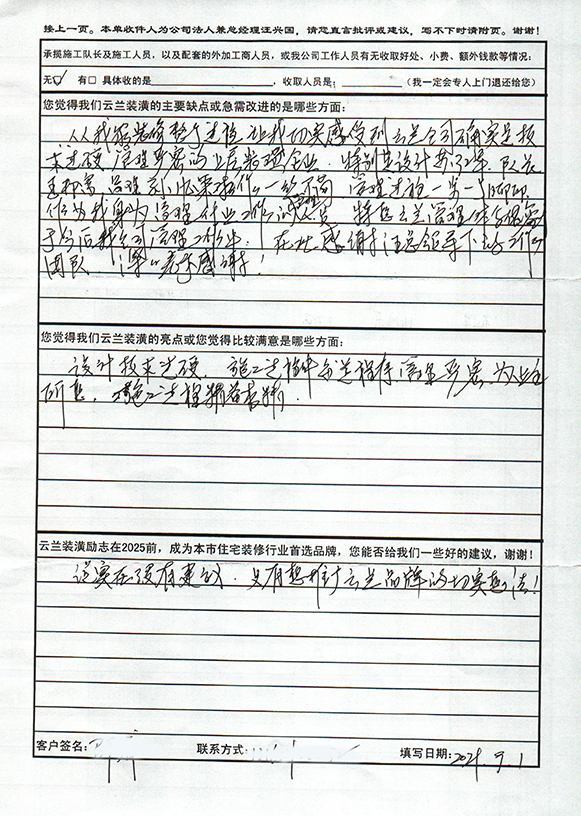 接上一页。本单收件人为公司法人兼总经理汪兴国,请您直言批评或建议,写不下时请附页。谢谢!
承揽施工队长及施工人员,以及配套的外加工商人员,或我公司工作人员有无收取好处、小费、额外钱款等情况:
无☑ 有□ 具体收的是 ,收取人员是: (我一定会专人上门退还给您)
您觉得我们云兰装潢的主要缺点或急需改进的是哪些方面:
从我家装修整个过程,让我切实感受到云兰公司确实是技
术过硬,管理严密的上层装潢企业。特别是设计 队长
管理
作为我身为管理 工作的人员 云兰管理
于今后我公司管理工作中。在此感谢汪总领导下 工作
团队!深深表示感谢!
您觉得我们云兰装潢的亮点或您觉得比较满意是哪些方面:
设计技术过硬,施工过程中 程序管理严密,为业主
所想,施工过程精益求精。
云兰装潢励志在2025前,成为本市住宅装修行业首选品牌,您能否给我们一些好的建议,谢谢!
说实在没有建议,只有想推广云兰品牌的切实想法!
客户签名: 联系方式: 填写日期:2021.9.1